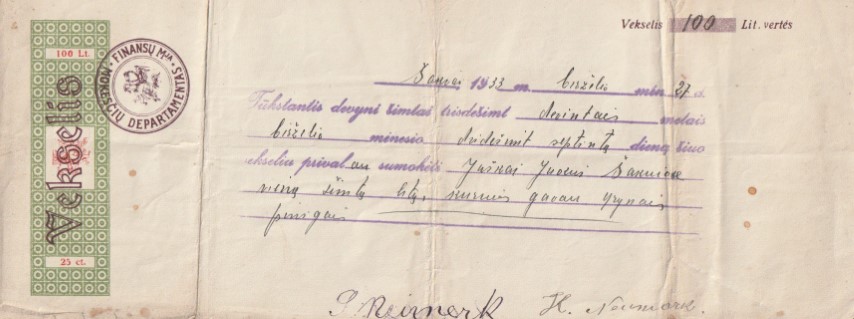 Vekselis 100 Lit. vertės
100 Lt.
FINANSŲ M-JA · MOKESČIŲ DEPARTAMENTAS ·
Vekselis
25 ct.
1933 m. birželio mėn. 27 d.
Tūkstantis devyni šimtai trisdešimt devintais metais
birželio mėnesio dvidešimt septintą dieną šiuo
vekseliu privalau sumokėti
vieną šimtą litų, kuriuos gavau grynais
pinigais